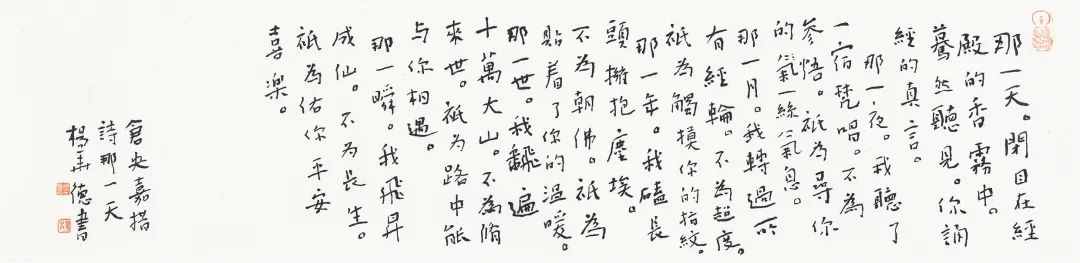 那一天。閉目在經
殿的香霧中。
驀然聽見。你誦
經的真言。
那一夜。我聽了
一宿梵唱。不為
參悟。祇為尋你
的氣一絲氣息。
那一月。我轉過所
有經輪。不為超度。
祇為觸摸你的指紋。
那一年。我磕長
頭擁抱塵埃。
不為朝佛。祇為
貼着了你的溫暖。
那一世。我翻遍
十萬大山。不為脩
來世。祇為路中能
与你相遇。
那一瞬。我飛昇
成仙。不為長生。
祇為佑你平安
喜楽。
倉央嘉措
詩那一天
楊德書